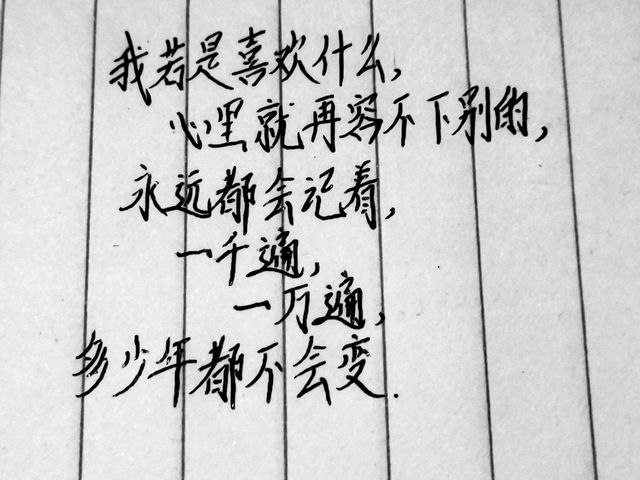 我若是喜欢什么,
心里就再容不下别的,
永远都会记着,
一千遍,
一万遍,
多少年都不会变.